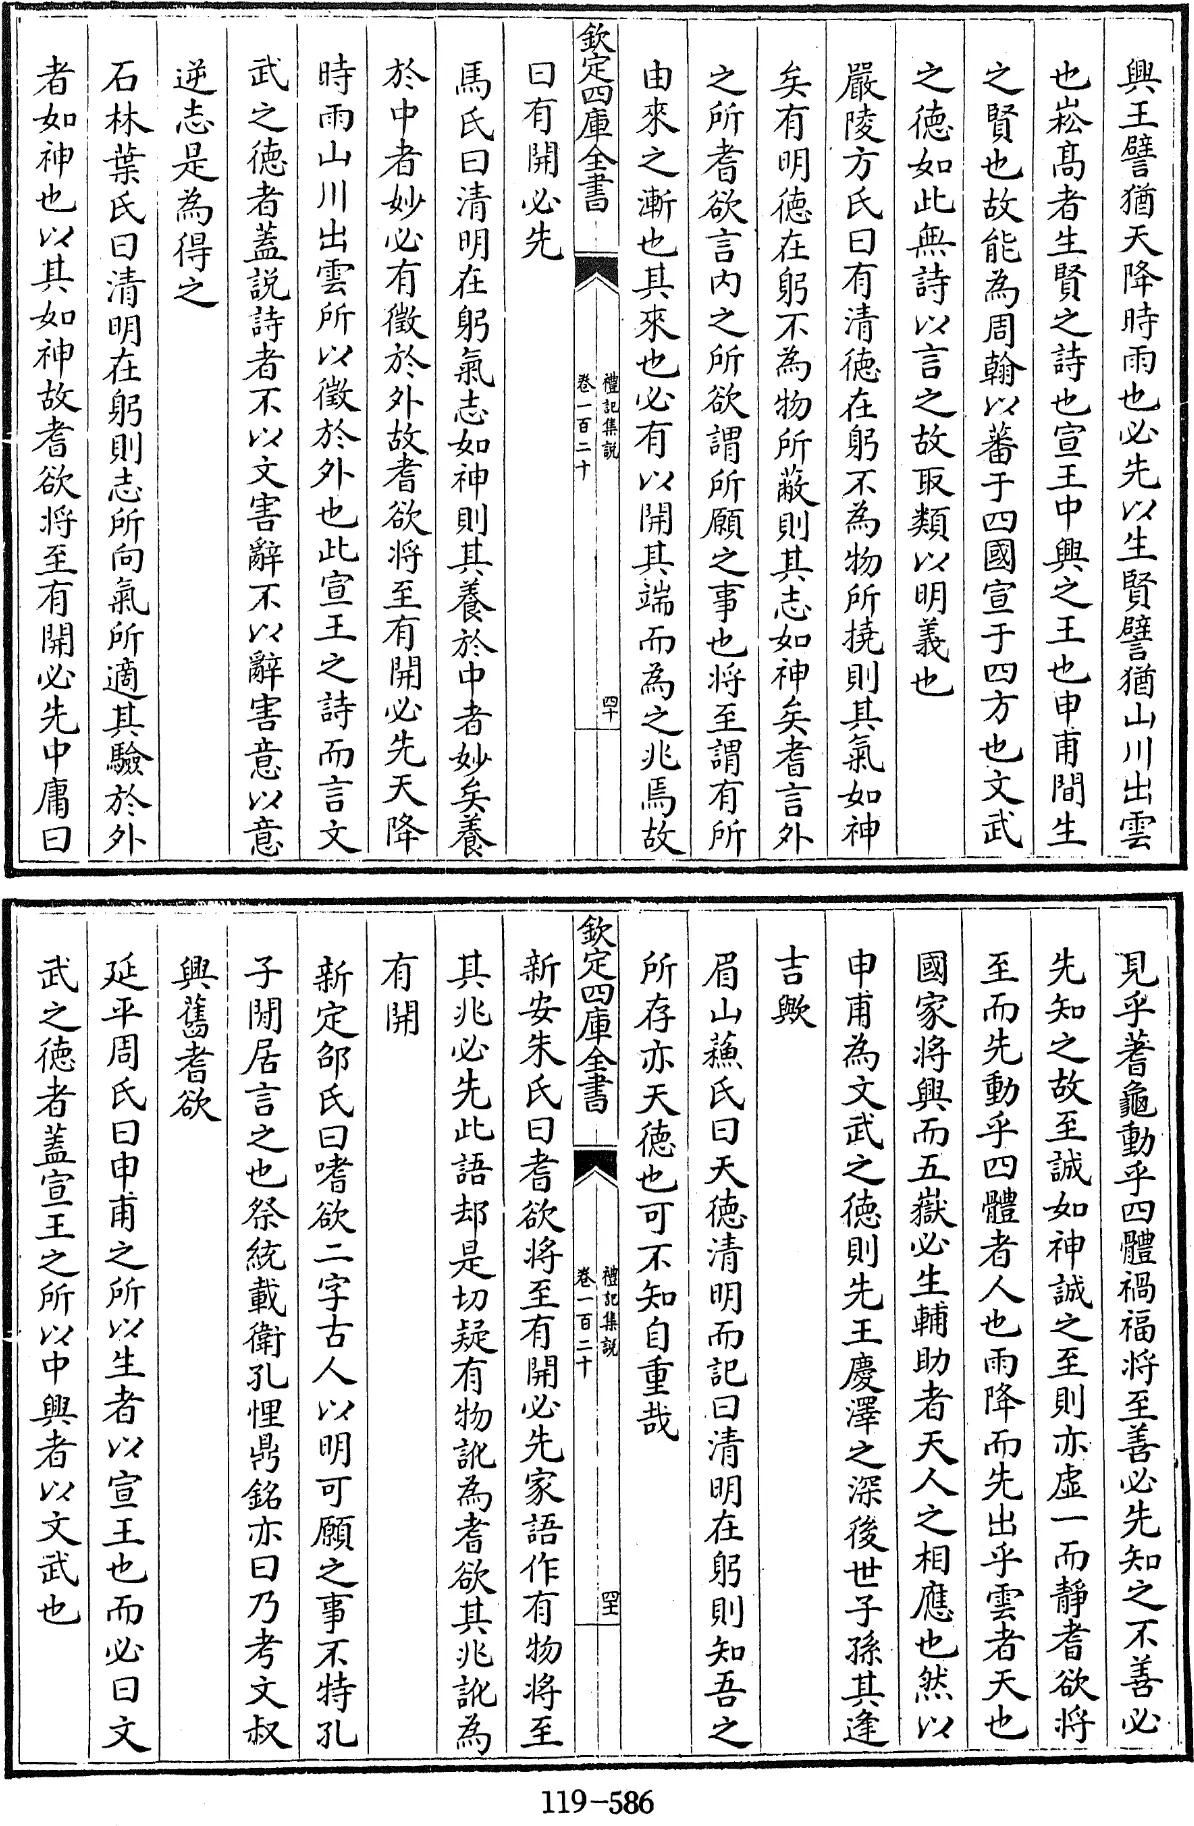 興王譬猶天降時雨也必先以生賢譬猶山川出雲
也崧髙者生賢之詩也宣王中興之王也申甫間生
之賢也故能為周翰以蕃于四國宣于四方也文武
之徳如此無詩以言之故取類以明義也
嚴陵方氏曰有清徳在躬不為物所撓則其氣如神
矣有明徳在躬不為物所蔽則其志如神矣耆言外
之所耆欲言内之所欲謂所願之事也将至謂有所
由來之漸也其來也必有以開其端而為之兆焉故
欽定四庫全書
禮記集説
卷一百二十
四十
曰有開必先
馬氏曰清明在躬氣志如神則其養於中者妙矣養
於中者妙必有徵於外故耆欲将至有開必先天降
時雨山川出雲所以徵於外也此宣王之詩而言文
武之徳者蓋説詩者不以文害辭不以辭害意以意
逆志是為得之
石林葉氏曰清明在躬則志所向氣所適其驗於外
者如神也以其如神故耆欲将至有開必先中庸曰
見乎蓍龜動乎四體禍福将至善必先知之不善必
先知之故至誠如神誠之至則亦虚一而靜耆欲将
至而先動乎四體者人也雨降而先出乎雲者天也
國家将興而五嶽必生輔助者天人之相應也然以
申甫為文武之徳則先王慶澤之深後世子孫其逢
吉歟
眉山蘓氏曰天徳清明而記曰清明在躬則知吾之
所存亦天徳也可不知自重哉
欽定四庫全書
禮記集説
卷一百二十
四十一
新安朱氏曰耆欲将至有開必先家語作有物将至
其兆必先此語却是切疑有物訛為耆欲其兆訛為
有開
新定邵氏曰嗜欲二字古人以明可願之事不特孔
子閒居言之也祭統載衛孔悝鼎銘亦曰乃考文叔
興舊耆欲
延平周氏曰申甫之所以生者以宣王也而必曰文
武之徳者蓋宣王之所以中興者以文武也
119-586